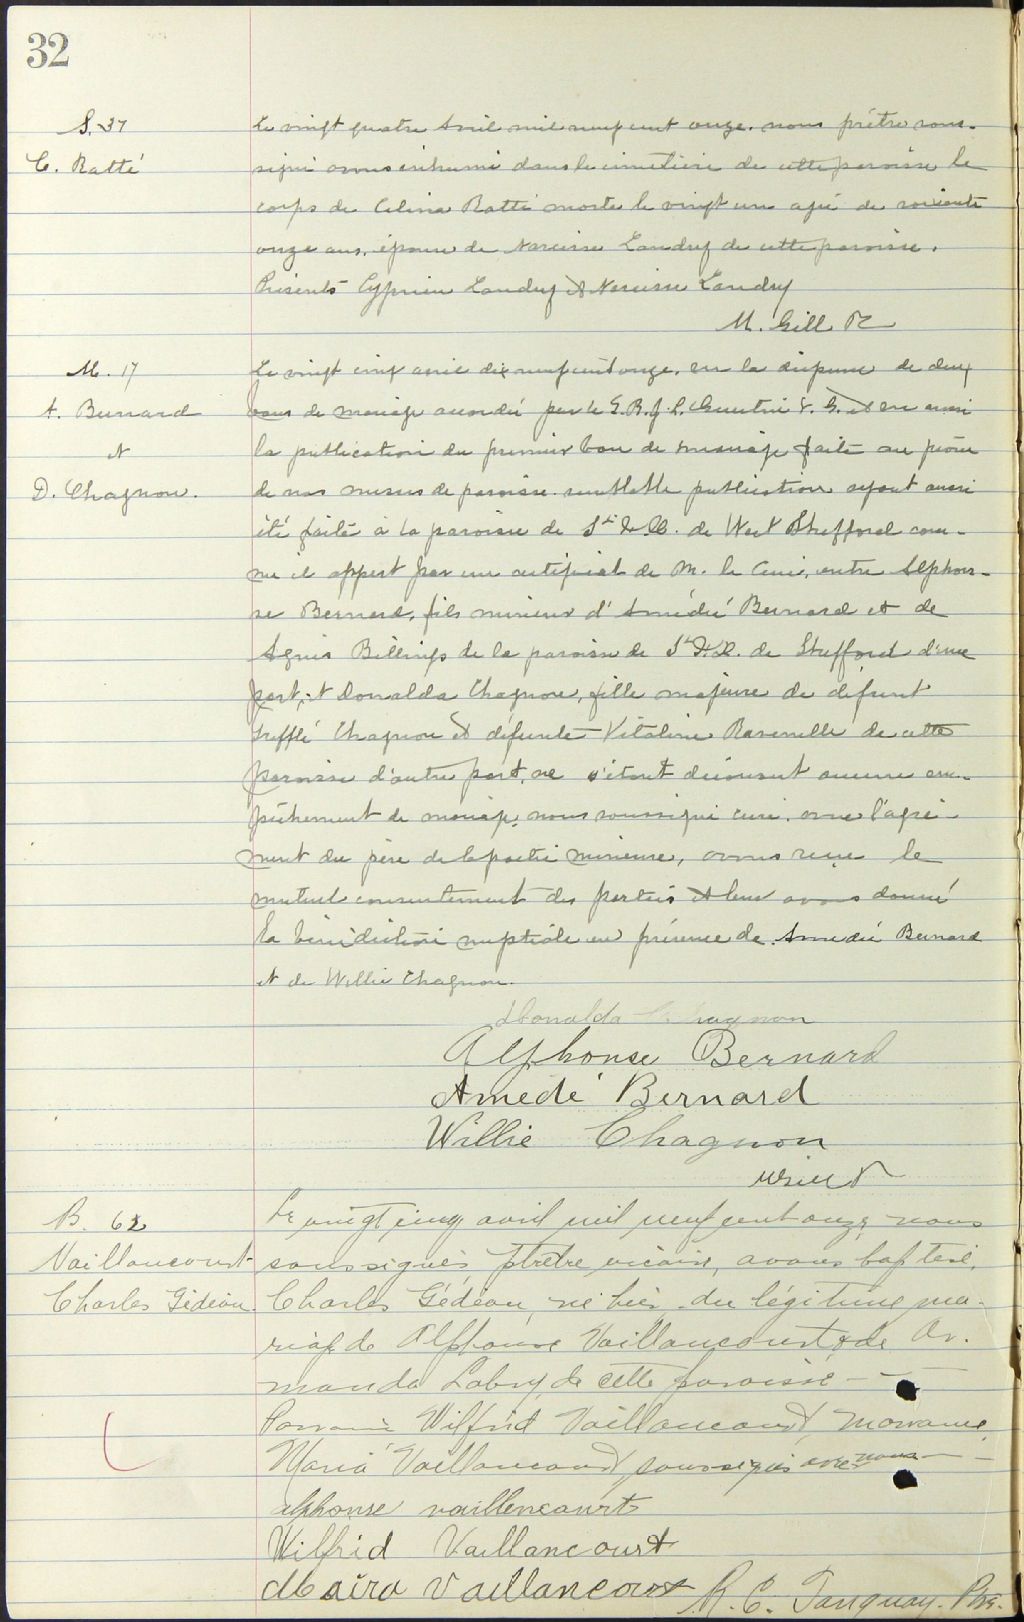 32
S. 37
C. Ratté
Le vingt quatre Avril mil neuf cent onze. nous prêtre sous-
signé avons inhumé dans le cimetière de cette paroisse le
corps de Celina Ratté morte le vingt un agée de soixante
onze ans, épouse de Narcisse Landry de cette paroisse.
Présents Cyprien Landry & Narcisse Landry
M. Gill
M. 17
A. Bernard
et
D. Chagnon.
Le vingt cinq avril dix neuf cent onze, vu la dispense de deux
bans de mariage accordée par le G. V. G. et vu aussi
la publication du premier ban de mariage faite au prône
de nos messes de paroisse semblable publication ayant aussi
été faite à la paroisse de St de West Shefford com-
me il appert par un certificat de M. le Curé, entre Alphon-
se Bernard, fils mineur d'Amédée Bernard et de
Agnès Billings de la paroisse de St de Shefford d'une
part, et Donalda Chagnon, fille majeure de défunt
Trefflé Chagnon & défunte Vitaline de cette
paroisse d'autre part, ne s'étant découvert aucun em-
pêchement de mariage, nous soussigné curé, avec l'agré-
ment du père de la partie mineure, avons reçu le
mutuel consentement des parties & leur avons donné
la bénédiction nuptiale en présence de Amédée Bernard
et de Willie Chagnon.
Donalda Chagnon
Alphonse Bernard
Amédé Bernard
Willie Chagnon
B. 62
Vaillancourt
Charles Gédéon.
Le vingt cinq avril mil neuf cent onze, nous
soussignés Prêtre vicaire, avons baptisé,
Charles Gédéon, né hier du légitime ma-
riage de Alphonse Vaillancourt & de Ar-
manda Labry, de cette paroisse -
Parrain Wilfrid Vaillancourt, marraine,
Maria Vaillancourt, soussignés avec nous
alphonse vaillencourt
Wilfrid Vaillancourt
Maira Vaillancourt
R. C. Tanguay. Ptre.